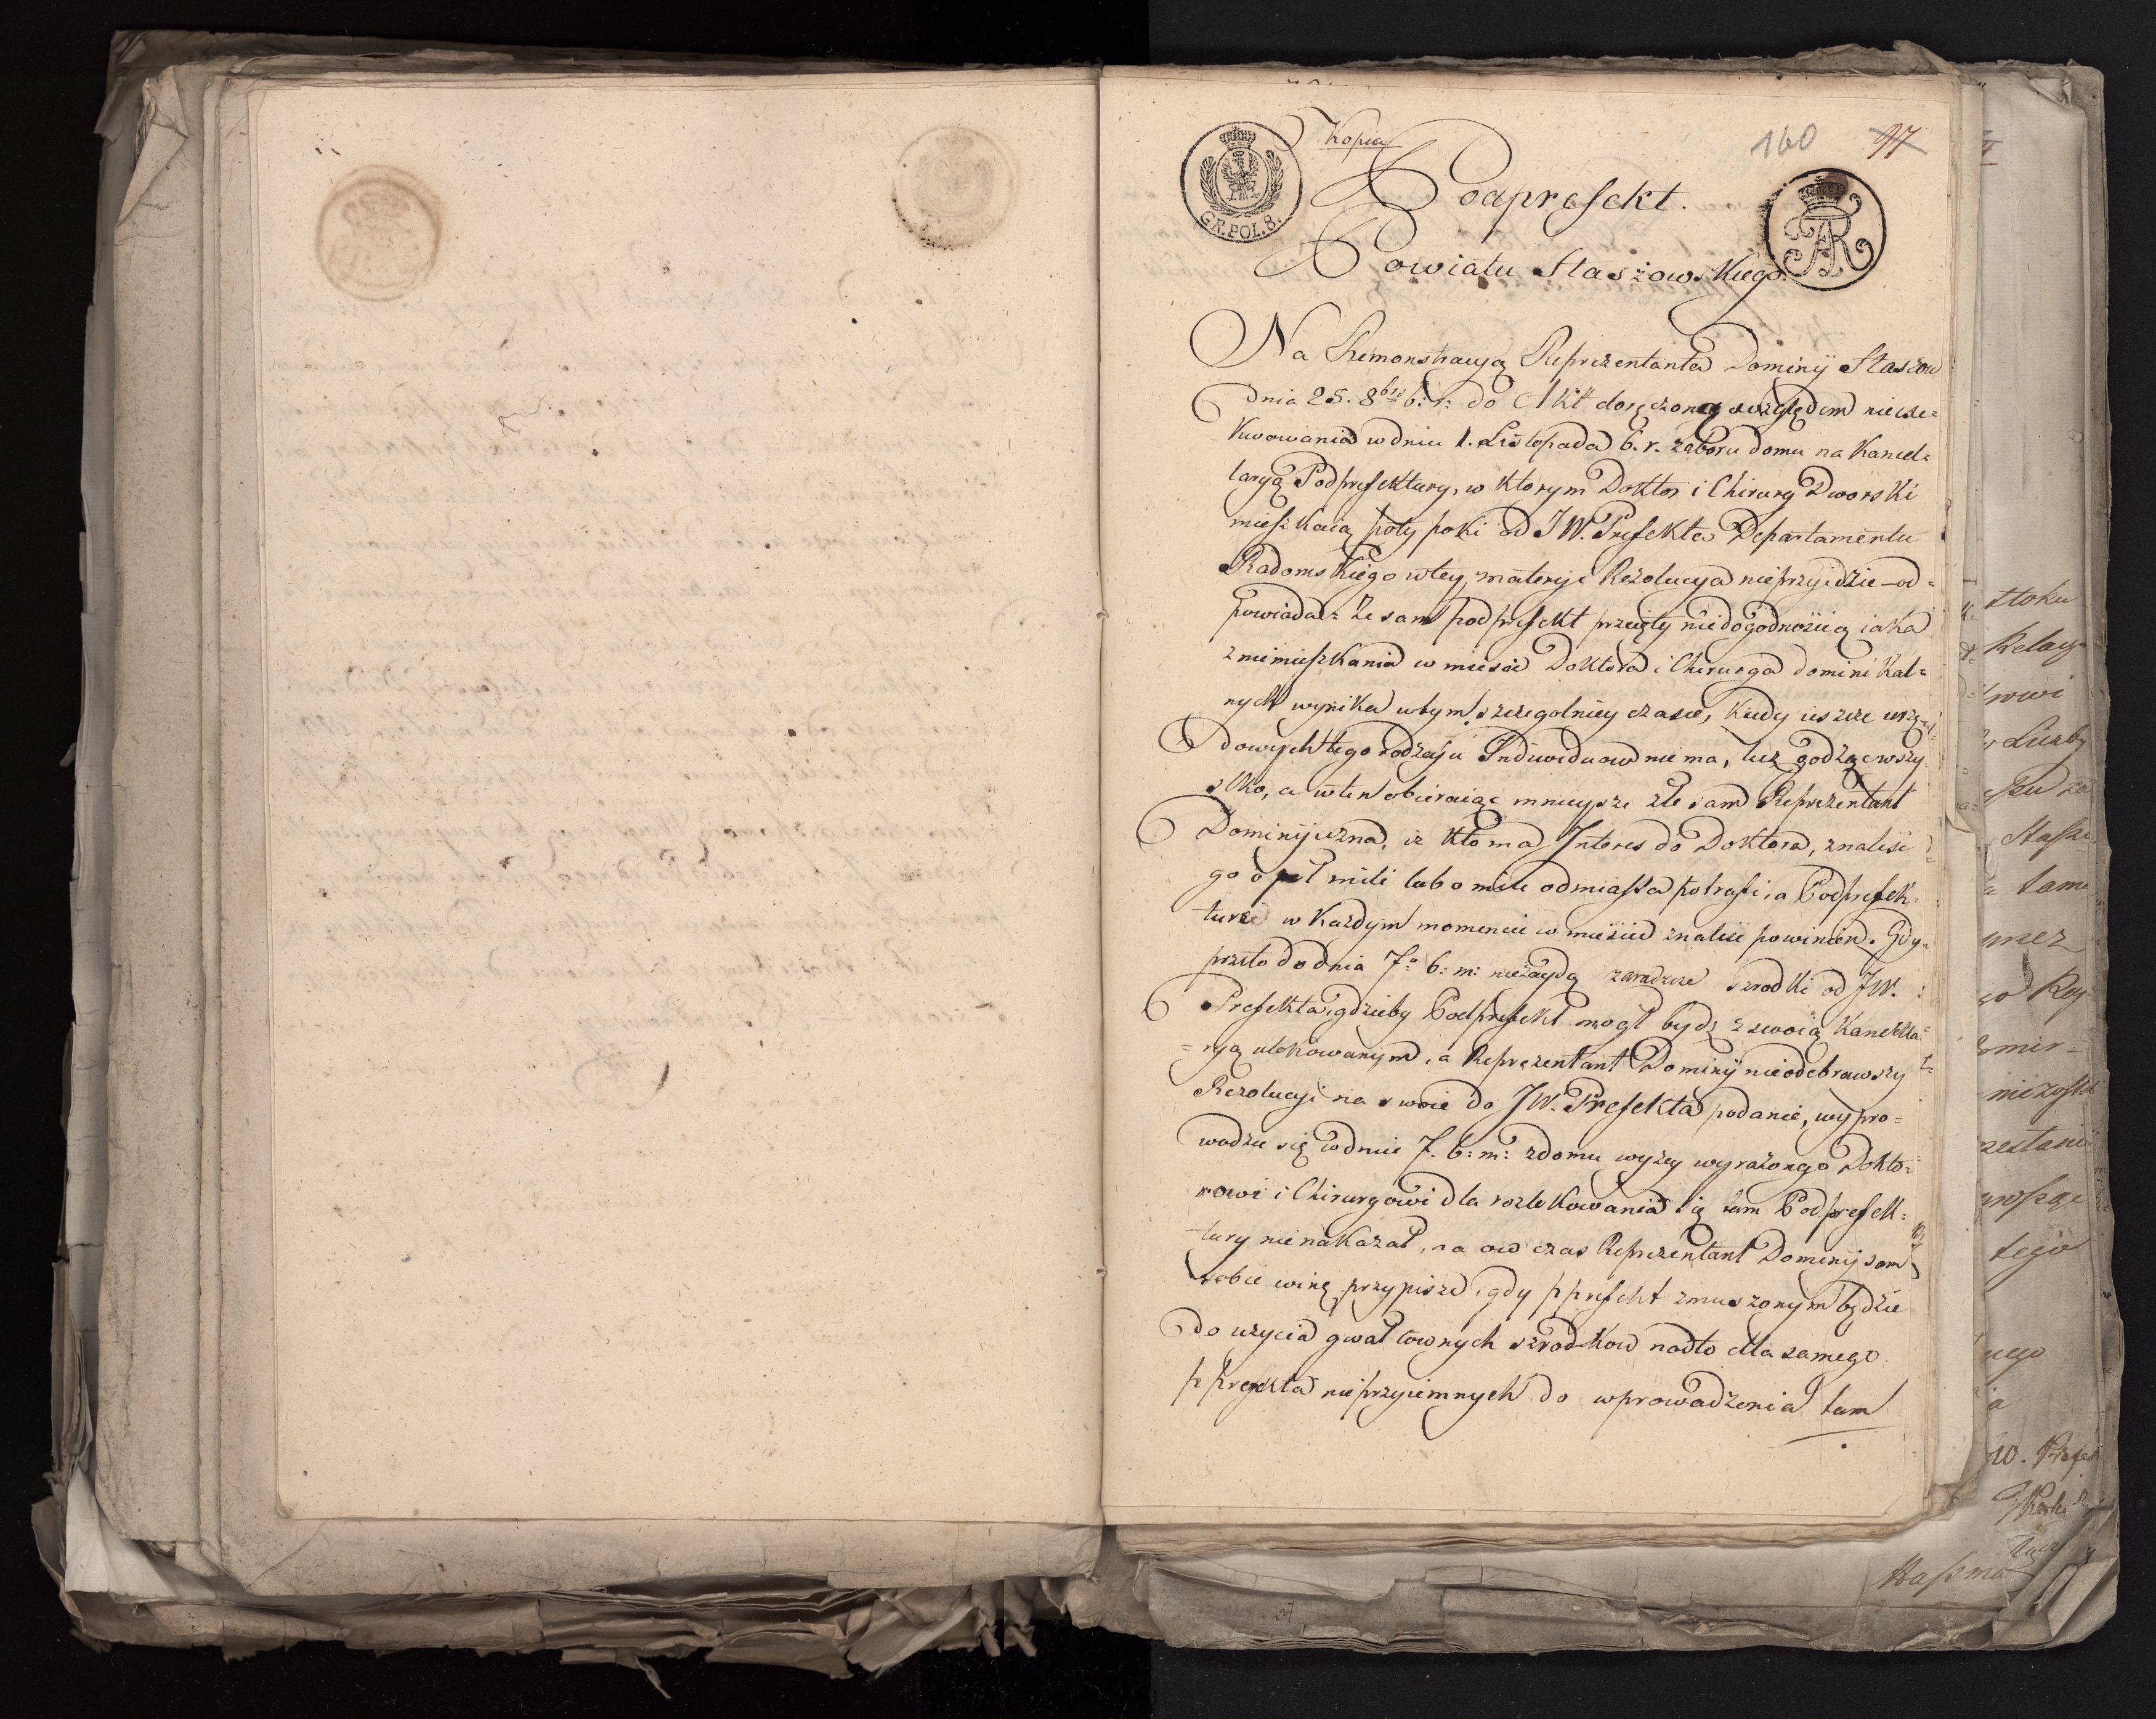 Kopia
160
97
GR. POL. 8.
Podprefekt.
Powiatu Staszowskiego.
Na Remonstracyą Reprezentanta Dominij Staszow
dnia 25. 8bra b: r: do Akt doręczoną względem nieexe=
kwowania w dniu 1. Listopada b. r. zaboru domu na Kancel=
laryą Podprefektury, w ktorym Doktor i Chirurg Dworski
mieszkaią poty poki od JW. Prefekta Departamentu
Radomskiego w tey materyi Rezolucya nieprzyidzie - od=
powiada: że sam podprefekt przeięty niedogodnością iaka
z niemieszkania w miescie Doktora i Chirurga dominikal=
nych wynika w tym szczegolniey czasie, kiedy ieszcze urzę=
dowych tego rodzaju Indiwiduow niema, lecz godząc wszy=
stko, a w ten obieraiąc mnieysze złe sam Reprezentant
Dominij uzna, iż kto ma Interes do Doktora, znaleść
go o pół mili lub o mile od miasta potrafi, a Podprefek=
turę w każdym momencie w mieście znaleść powinien. Gdy
przeto do dnia 7o b: m: niezaydą zaradcze szrodki od JW.
Prefekta, gdzieby Podprefekt mogł bydz z swoią Kancella=
=ryą ulokowanym, a Reprezentant Dominij nieodebrawszy
Rezolucyi na swoie do JW. Prefekta podanie, wypro=
wadzic się w dniu 7. b: m: z domu wyżey wyrażonego Dokto=
rowi i Chirurgowi dla rozlokowania się tam Podprefek=
tury nienakazał, na ow czas Reprezentant Dominij sam
sobie winę przypisze, gdy pprefekt zmuszonym będzie
do użycia gwałtownych szrodkow nadto dla samego
pprefekta nieprzyiemnych do wprowadzenia tam